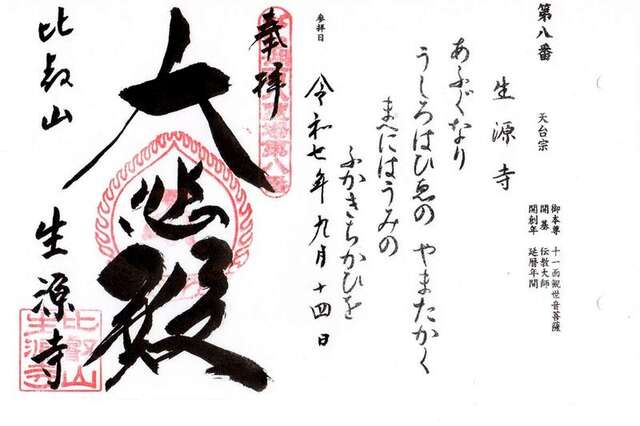 第八番
生源寺
天台宗
御本尊 十一面観世音菩薩
開基 伝教大師
開創年 延暦年間
あふぐなり
うしろはひゑの やまたかく
まへにはうみの
ふかきちかひを
参拝日
令和七年九月十四日
奉拝
大悲殿
比叡山 生源寺
比叡山
生源寺